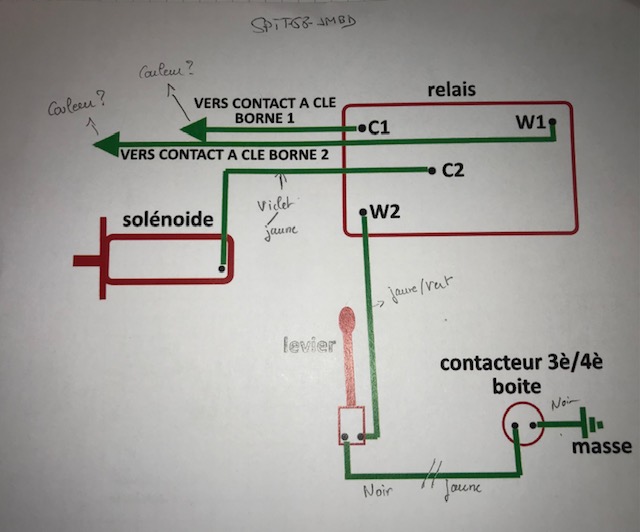 SPIT-68-JMBD
Couleur?
Couleur?
relais
VERS CONTACT A CLE
BORNE 1
C1
W1
VERS CONTACT A CLE BORNE 2
C2
Violet
jaune
solénoide
W2
jaune/vert
levier
contacteur 3è/4è
boite
Noir
masse
Noir // jaune